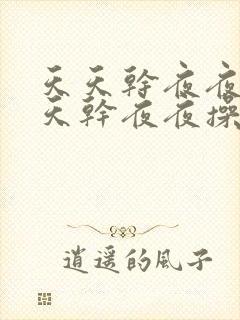 天天幹夜夜
天幹夜夜操
逍遥的風子